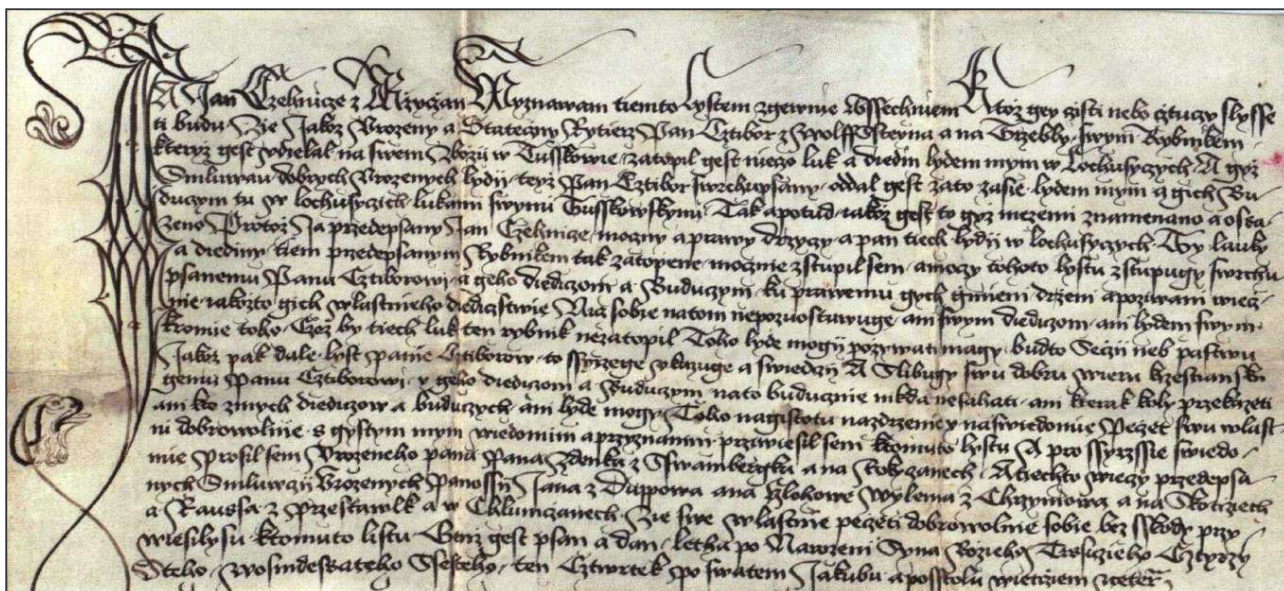 A Jan Czelnicze z Mzyczan Wyznawam tiemto lystem zgewnie Wssechniem Ktoz gey czisti nebo cztuczy slysse
ti budu Zie Jakoz Vrozeny a Stateczny Rytierz Pan Cztibor z Wolffssteyna a na Trzebly swym Rybnikem
kteryz gest vdielal na swem Zbozii w Tusskowie zatopil gest nieczo luk a diedin lydem mym w Lochusyczych A gyz
Smluwau dobrych Vrozenych lydij teyz Pan Cztibor swrchupsany oddal gest zato zasie lydem mym a gich Bu
duczym tu w lochusyczich lukami swymi Tusskowskymi Tak a potud iakoz gest to gyz mezemi znamenano a osa
zeno Protoz Ja przedepsany Jan Czelnicze moczny a prawy drzyczy a pan tiech lydij w lochusyczych Ty lauky
a diediny tiem przedepsanym Rybnikem tak zatopene mocznie zstupil sem a moczy tohoto lystu zstupugy swrchu
psanemu Panu Cztiborowi a geho diediczom a Buduczym ku prawemu gych gmieni drzeni a poziwani wiecz
nie iakozto gich wlastneho diedicztwie Nicz sobie natom nepozuostawuge ani swym diediczom ani lydem swym
kromie toho Czoz by tiech luk ten rybnik nezatopil Toho lyde mogij pozywati magy budto Seczij neb pastwu
Jakoz pak dale lyst Panie Cztiborow to ssyrzege vkazuge a swiedczij A Slibugy swu dobru wieru krzestiansku
gemu Panu Cztiborowi y geho diediczom a Buduczym nato buducznie nikda nesahati ani kterak koly przekazeti
ani kto zmych diediczow a buduczych ani lyde mogy Toho nagistotu nazdrzenie y naswiedomie Peczet swu wlast
ni dobrowolnie s gystym mym wiedomim a przyznanim przywiesil sem ktomuto lystu A pro ssyrzssie swiedo
mie Prosil sem Vrozeneho pana Pana Zdenka z Sswambergka a na Rokyczanech A techto wieczy przedepsa
nych Smluwczij Vrozenych Panossij Jana z Duppowa a na Hlohowe Wylema z Chrzymowa a na Skotrziech
a Raussa z Przestawlk a w Chlumczanech Zie swe wlastnie peczeti dobrowolnie sobie bez sskody przy
wiesily su ktomuto listu Genz gest psan a dan letha po Narozeni Syna Bozieho Tisiczieho Cztyrzy
Steho wosmdesateho Ssesteho ten Cztwrtek po swatem Jakubu aposstolu wietcziem